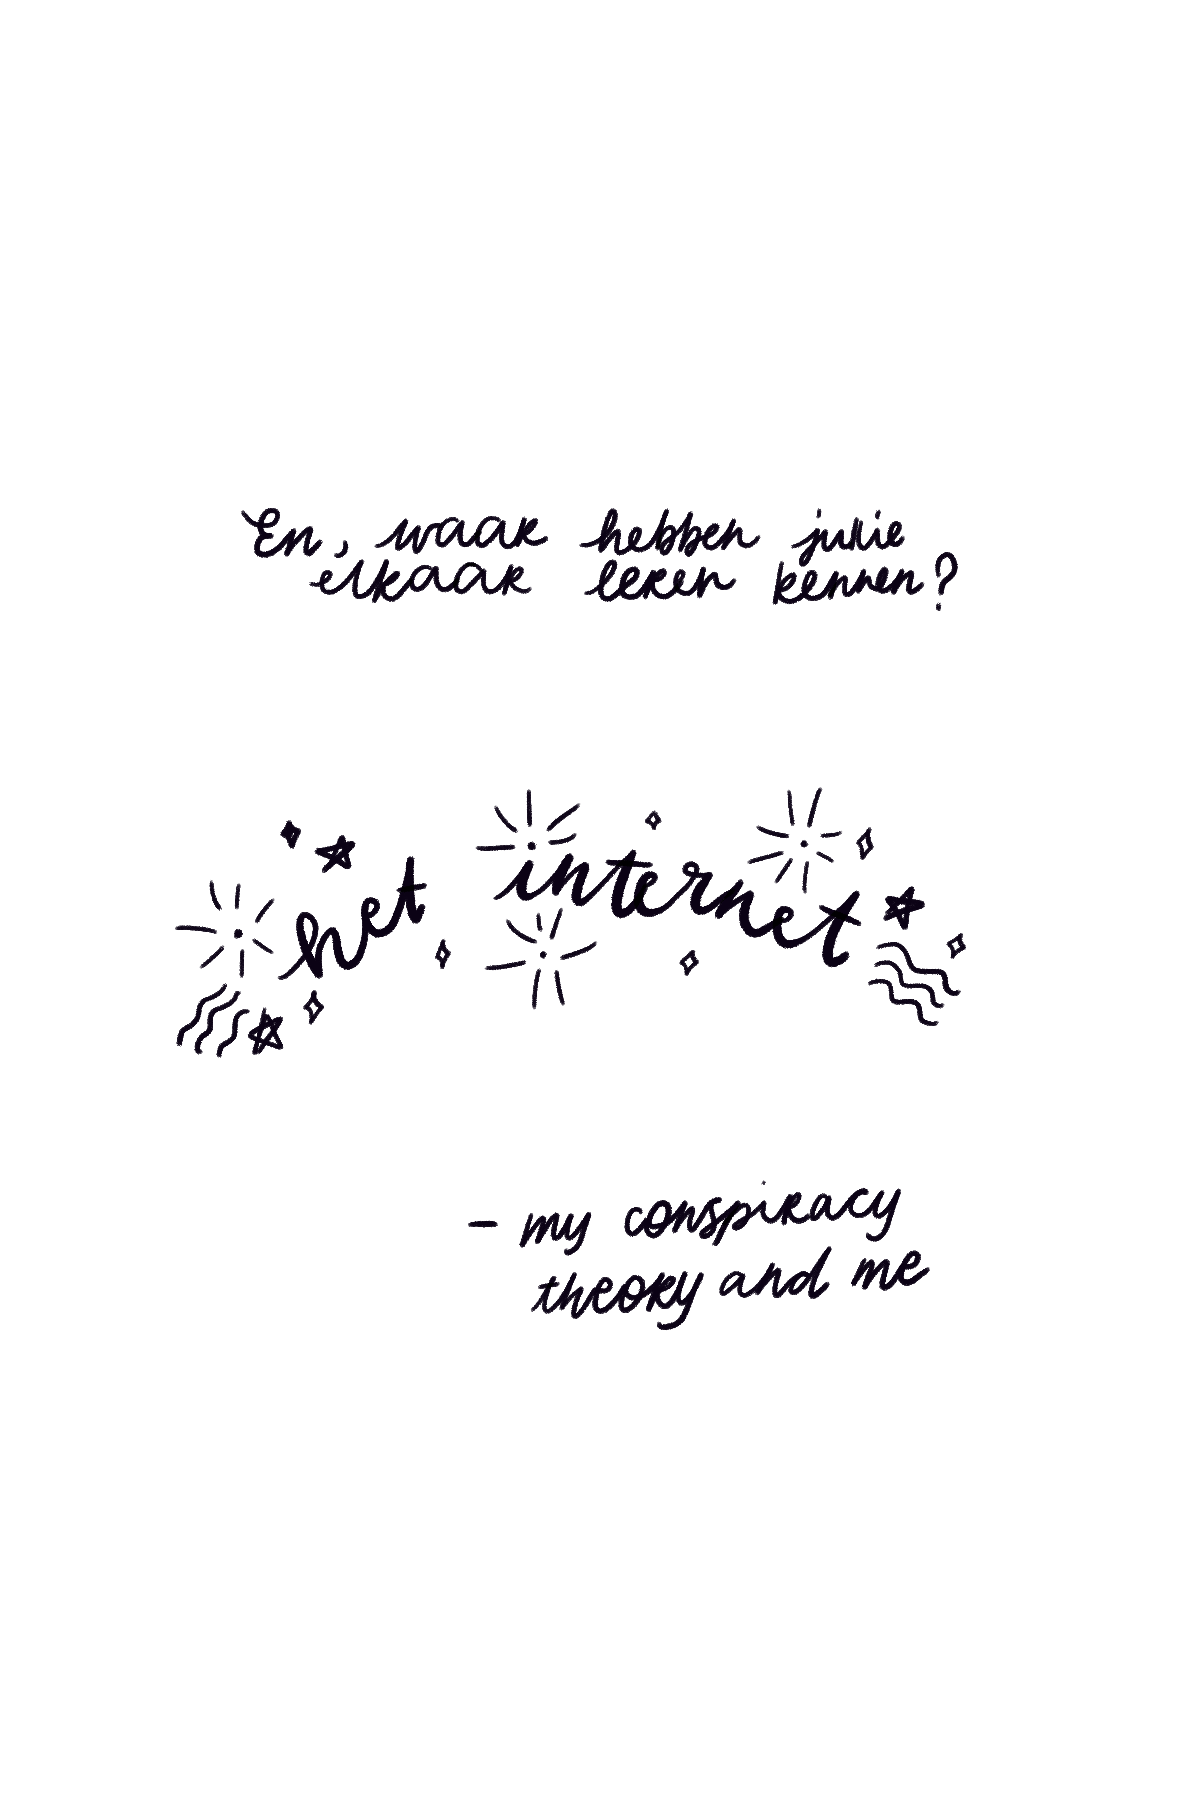 En, waar hebben julie
elkaar leren kennen?
het internet
- my conspiracy
theory and me